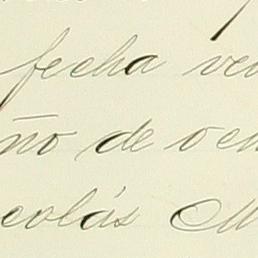 fecha ve
ño de oc
colás M